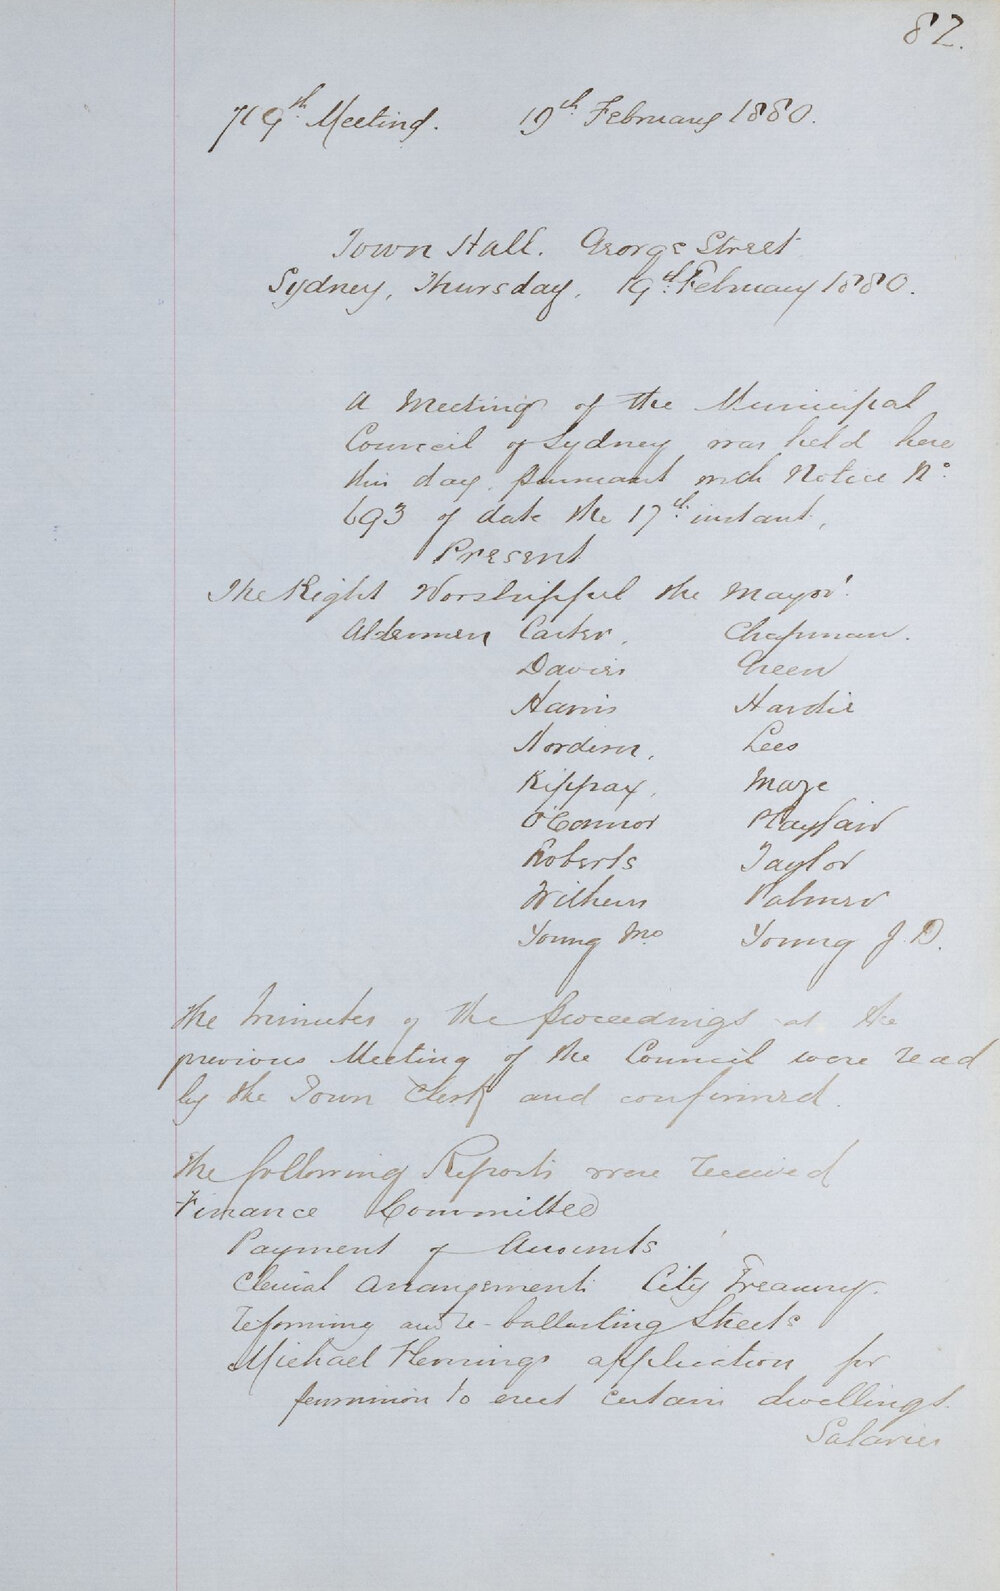 82.
719th Meeting. 19th February 1880.
Town Hall. George Street
Sydney, Thursday, 19th February 1880.
A Meeting of the Municipal
Council of Sydney was held here
this day, pursuant with Notice No.
693 of date the 17th instant,
Present
The Right Worshipful the Mayor.
Aldermen Carter, Chapman.
Davies Green
Harris Hardie
Lees
Kippax, Maze
O'Connor Playfair
Roberts Taylor
Palmer
Young Young J. D.
The Minutes of the Proceedings at the
previous Meeting of the Council were read
by the Town Clerk and confirmed.
The following Reports were received
Finance Committee
Payment of Accounts
Clerical arrangements City Treasury.
Reforming and re-ballasting Streets
Michael Flemings application for
permission to erect certain dwellings.
Salaries